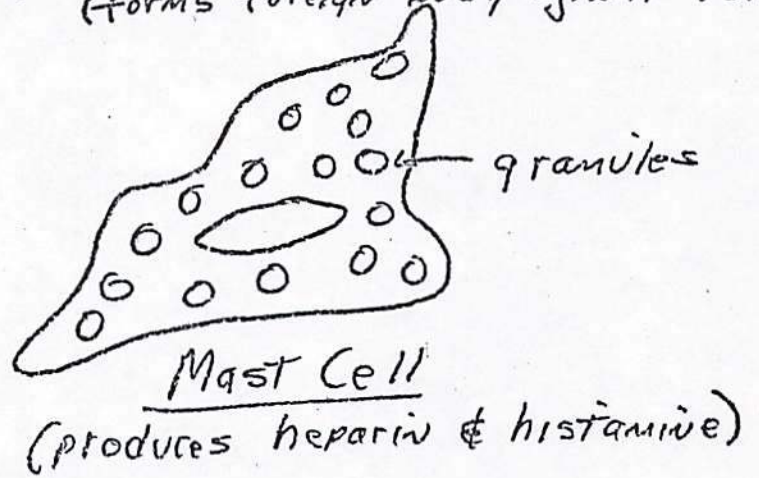 (forms foreign body giant
granules
Mast Cell
(produces heparin & histamine)